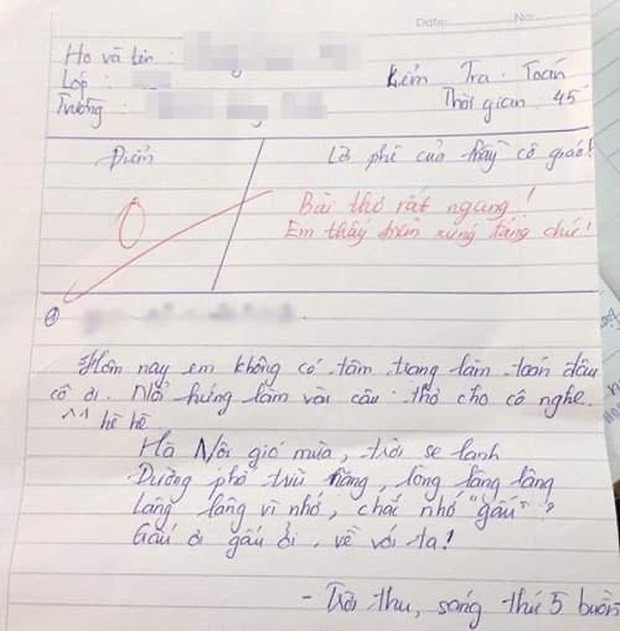 Date: No:
Họ và tên :
Lớp :
Trường :
Kiểm Tra Toán
Thời gian 45'
Điểm
Lời phê của thầy cô giáo!
0
Bài thơ rất ngang!
Em thấy điểm xứng đáng chứ!
Hôm nay em không có tâm trạng làm toán đâu
cô ơi. Nổi hứng làm vài câu thơ cho cô nghe.
^^ hề hề
Hà Nội gió mùa, trời se lạnh
Đường phố trãi nắng, lòng lâng lâng
Lâng lâng vì nhớ, chắc nhớ "gấu"?
Gấu ơi gấu ởi, về với ta!
- Trời thu, sáng thứ 5 buồn